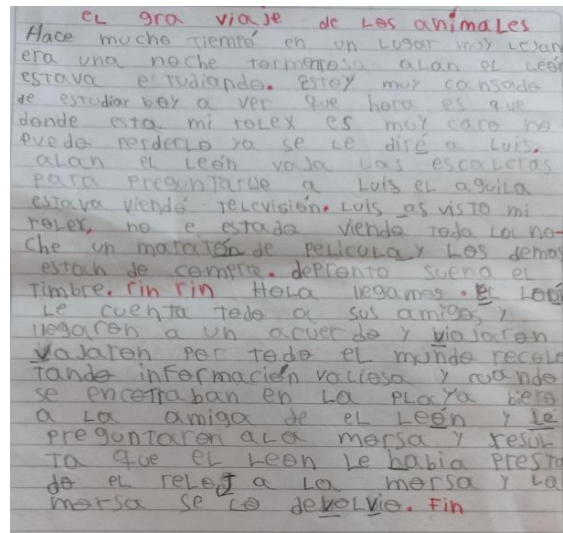 eL gra viaje de Los animales
Hace mucho tiempó en un Lugar muy Lejan
era una noche tormentosa alan eL León
estava estudiando. estoy muy cansado
de estudiar boy a ver que hora es que
donde esta mi rolex es muy caro no
puedo perderlo ya se Le diré a Luis.
alan eL León vaja Las escaleras
para preguntarle a Luis eL aguila
estava viendó television. Luis as visto mi
rolex, no e estado viendo toda La no-
che un maratón de pelicula y Los demas
estan de compra. depronto suena eL
timbre. rin rin Hola llegamos. EL León
Le cuenta todo a sus amigos, y
llegaron a un acuerdo y viajaron
vajaron por todo eL mundo recole
tando información valiosa y cuando
se encotraban en La playa biero
a La amiga de eL León y Le
preguntaron aLa morsa y resul
ta que eL Leon Le habia presta
do eL reloJ a La morsa y La
morsa se Lo devolvio. Fin